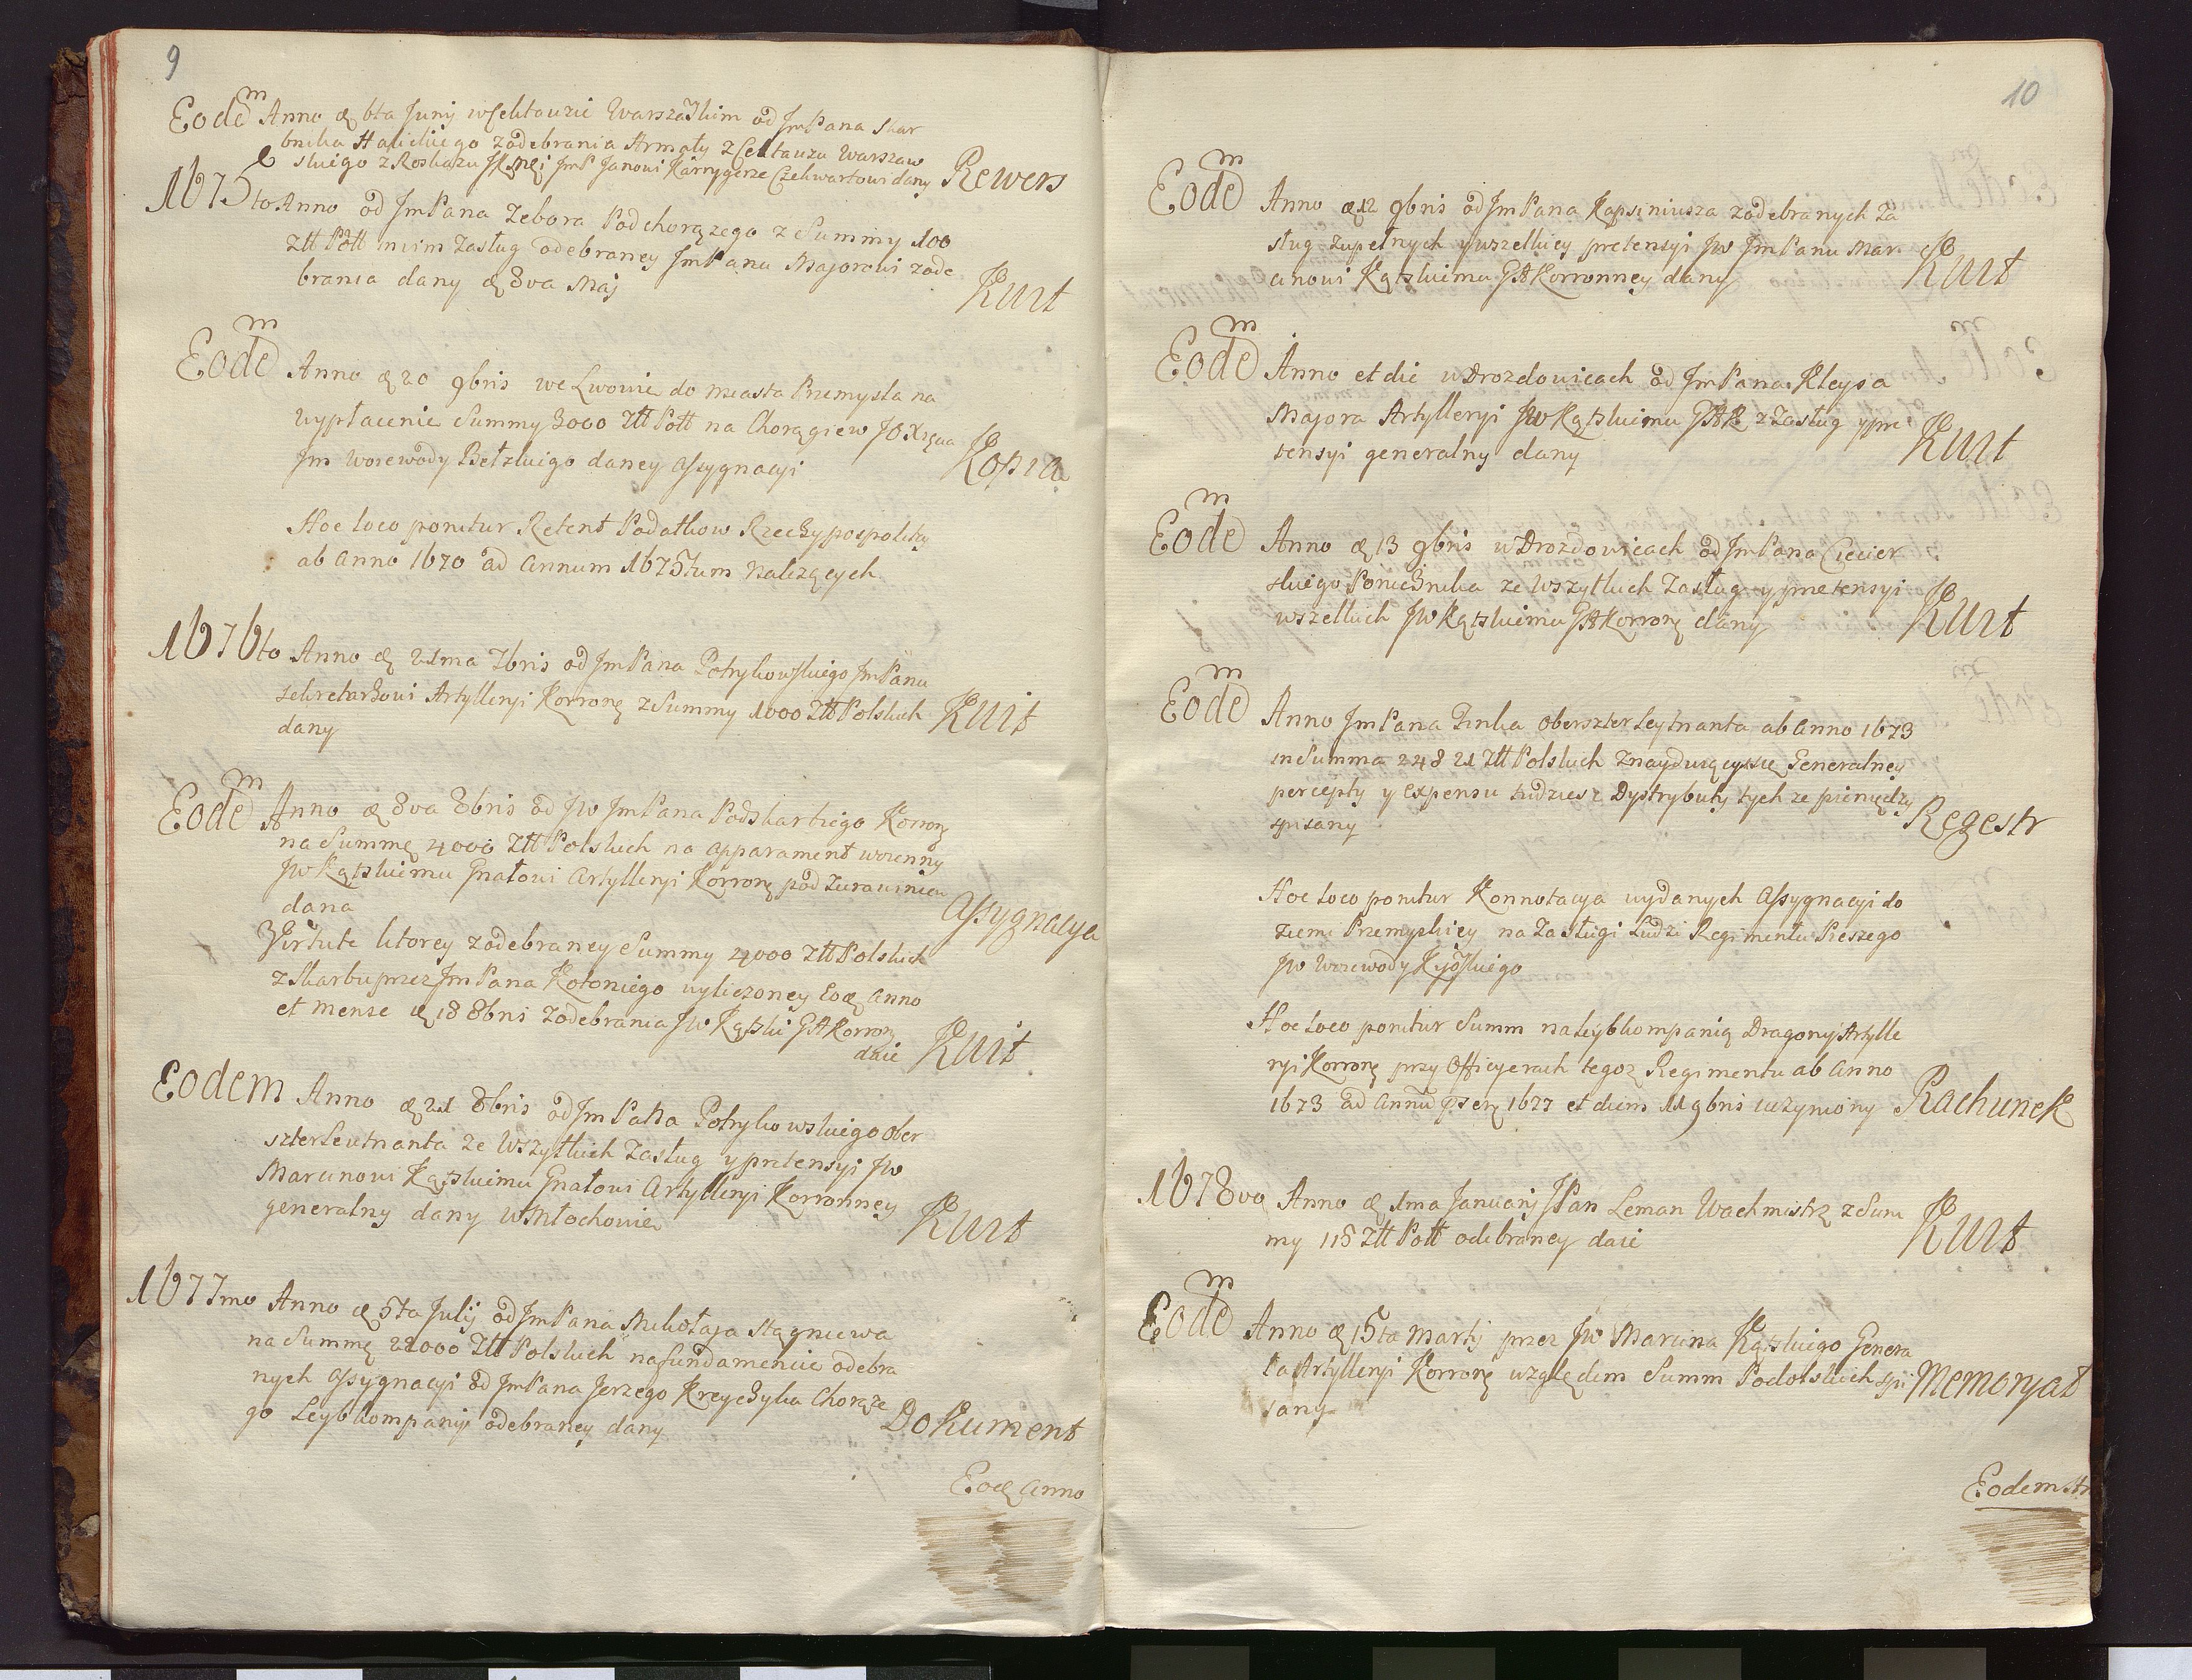 9
Eodem Anno d 6ta Junij w Cekauzie Warszaskim od Jm Pana Skar
bnika Halickiego z odebrania Armaty z Cekauzu Warszaw
skiego z Roskazu Jm Janowi dany Rewers
1675to Anno od Jm Pana Zebora Podchorązego z Summy 100
Ztt Poll mim Zasług odebraney Jm Panu Majorowi z ode
brania dany d 8va Maj Kwit
Eodem Anno d 20 9bris we Lwowie do miasta Przemysla na
wypłacenie Summy 3000 Ztt Poll na Chorągiew JO Xzęcia
Jm Woiewody Bełzkiego daney Assygnacyi Kopia
Hoc loco ponitur Retent Podatkow Rzeczypospolitey
ab Anno 1670 ad Annum 1675tum Nalezących
1676to Anno d 21ma 7bris od Jm Pana Potrykowskiego Jm Panu
Sekretarzowi Artylleryi Korronę z Summy 1000 Ztt Polskich
dany Kwit
Eodem Anno d 8va 8bris od Jw Jm Pana Podskarbiego Korronę
na Summę 4000 Ztt Polskich na apparament woienny
Jw Kątskiemu Gnałowi Artylleryi Korronę pod Zurawniem
dana Assygnacya
Virtute ktorey z odebraney Summy 4000 Ztt Polskich
z Skarbu przez Jm Pana Kotoniego wyliczoney Eod Anno
et mense d 18 8bris z odebrania Jw Kątski GA Korronę
daie Kwit
Eodem Anno d 21 8bris od Jm Pana Potrykowskiego Ober
szterleutnanta ze Wszytkich Zasług y pretensyi Jw
Marcinowi Kątskiemu Gnałowi Artylleryi Korronney
generalny dany w Młochowie Kwit
1677mo Anno d 5ta Julij od Jm Pana Mikołaja Stągniewa
na Summę 22000 Ztt Polskich na fundamencie odebra
nych Assygnacyi od Jm Pana Jerzego Kreychyka Choraze
go Leybkompanij odebraney dany Dokument
Eod Anno
10
Eodem Anno d 12 9bris od Jm Pana Kapsiniusza z odebranych Za
sług zupełnych y wszelkiey pretensyi Jw Jm Panu Mar
cinowi Kątskiemu GA Korronney dany Kwit
Eodem Anno et die w Drozdowicach od Jm Pana Kleysa
Majora Artylleryi Jw Kątskiemu GAK z Zasług y pre
tensyi generalny dany Kwit
Eodem Anno d 13 9bris w Drozdowicach od Jm Pana Ciecier
skiego Porucznika ze Wszytkich Zasług y pretensyi
wszelkich Jw Kątskiemu GA Korronę dany Kwit
Eodem Anno Jm Pana Finka Oberszter Leytnanta ab Anno 1673
in Summa 24821 Ztt Polskich Znayduiącysię Generalney
percepty y Expensu tudziesz Dystrybuty tych ze pieniędzy
spisany Regestr
Hoc loco ponitur Konnotacya wydanych Assygnacyi do
Ziemi Przemyskiey na Zasługi Ludzi Regimentu Pieszego
Jw Woiewody Kyioskiego
Hoc loco ponitur Summ na Leybkompanią Dragonij Artylle
ryi Korronę przy Officyerach tegoz Regimentu ab Anno
1673 ad Annu 1677 et diem 11 9bris uczyniony Rachunek
1678vo Anno d 1ma Januarij JPan Leman Wachmistrz z Sum
my 118 Ztt Poll odebraney daie Kwit
Eodem Anno d 15ta Martij przez Jw Marcina Kątskiego Genera
ła Artylleryi Korronę względem Summ Podolskich spi
sany Memoryał
Eodem An